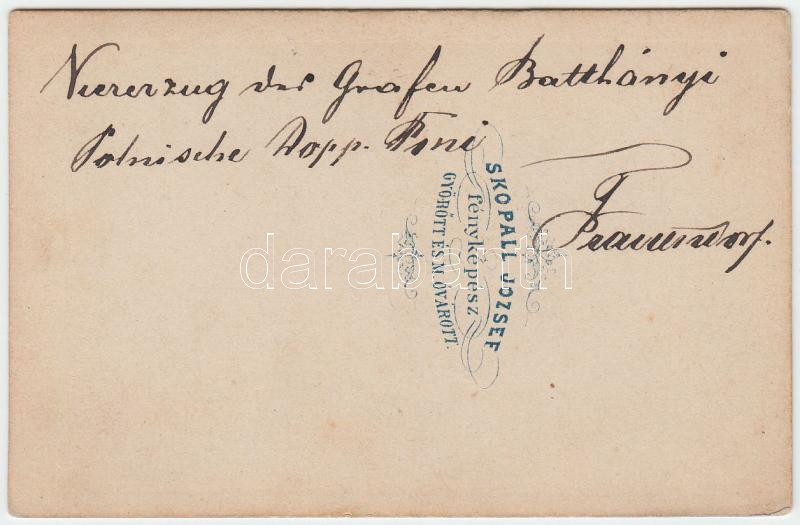 Viererzug des Grafen Batthányi
Polnische Dopp. Poni
Frauendorf.
SKOPALL JOZSEF
fényképész
GYŐRÖTT ES M. ÓVÁROTT.
darabanth